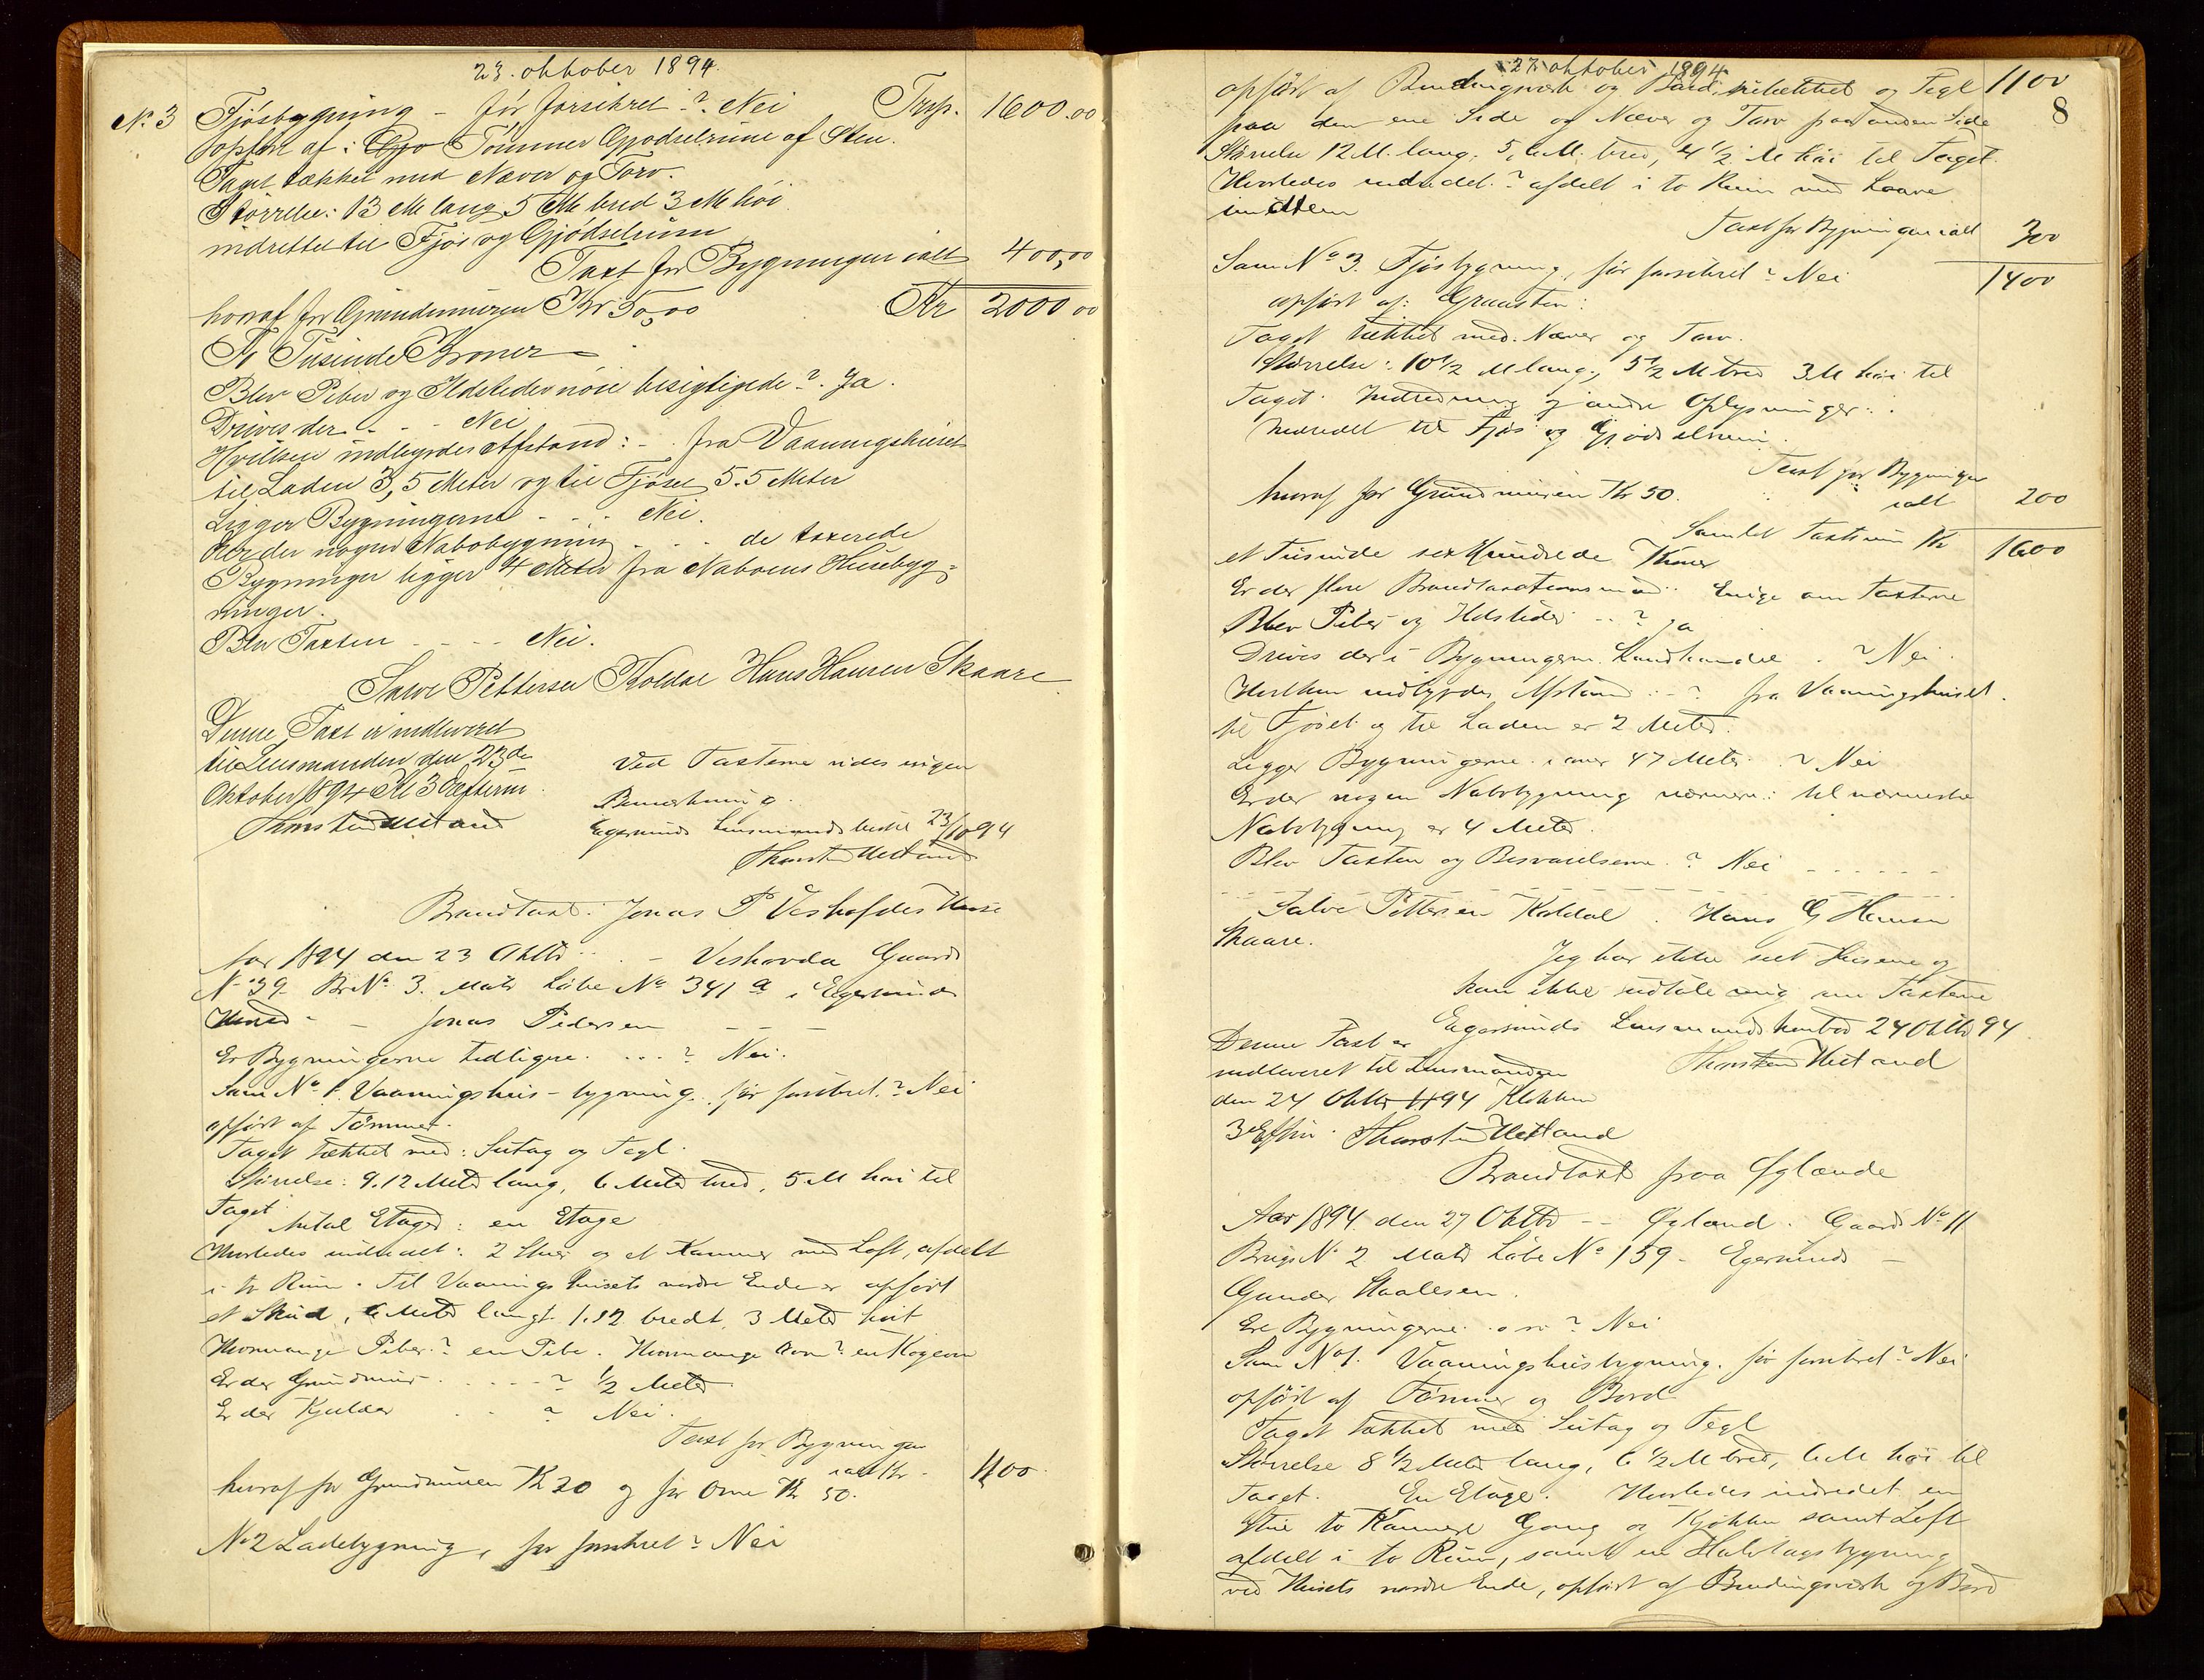 23. oktober 1894.
No. 3 Fjösbygning - för forsikret? Nei Trsp. 1600.00
opført af: Tömmer Gjödselrum af Sten.
Taget tækket med Næver og Torv.
Størrelse: 13 M lang 5 M bred 3 M høi
indrettet til Fjös og Gjödselrum
Taxt for Bygningen ialt 400,00
hvoraf for Grundmuren Kr 50,00 Kr 2000 00
To Tusinde Kroner
Blev Piber og Ildsteder nöie besigtigede? Ja.
Drives der - - - Nei
Hvilken indbyrdes Afstand: - . fra Vaaningshuset
til Laden 3,5 Meter og til Fjöset 5.5 Meter
Ligger Bygningerne - - - Nei.
Er der nogen Nabobygning . . . de taxerede
Bygninger ligger 4 Meter fra Naboens Husebyg-
ninger.
Blev Taxten - - - - Nei.
Salve Pettersen Koldal Hans Hansen Skaare
Denne Taxt er indleveret
til Lensmanden den 23de
Oktober 1894 Kl 3 Efterm.
Thorsten Hetland
Ved Taxterne vides ingen
Bemærkning.
Egersunds Lensmandsbestil 23/10 94
Thorsten Hetland
Brandtaxt: Jonas P Veshofdes Huse
Aar 1894 den 23 Oktbr . . - Veshovda Gaards
No 39 Br No 3. Matr Löbe No 341 a i Egersunds
Herred - - Jonas Pedersen - - -
Er Bygningerne tidligere. . . . ? Nei.
Sam No 1. Vaaningshus-bygning. för forsikret? Nei
opfört af Tömmer.
Taget tækket med: Sutag og Tegl.
Størrelse: 9.12 Meter lang, 6 Meter bred, 5 M höi til
Taget. Antal Etager: en Etage
Hvorledes indredet: 2 Stuer og et Kammer med Loft, afdelt
i to Rum. Til Vaaningshusets nordre Ende er opfört
et Skud, 6 Meter langt. 1.12 bredt, 3 Meter höit
Hvormange Piber? en Pibe. Hvormange Ovne? en Kogeovn
Er der Grundmur . . . . - - ? 1/2 Meter
Er der Kjelder . . ? Nei.
Taxt for Bygningen
ialt Kr. 1100.
hvoraf for Grundmuren Kr 20 og for Ovne Kr 50.
No 2 Ladebygning, för forsikret? Nei
27 oktober 1894
8
opfört af Bindingsværk og Bord, tækket og Tegl 1100
paa den ene Side og Næver og Torv paa anden Side
Størrelse 12 M. lang, 5,6 M. bred, 4 1/2 M höi til Taget.
Hvorledes indredet? afdelt i to Rum med Laave
imellem
Taxt for Bygningen ialt 300
Sam No 3. Fjösbygning, för forsikret? Nei 1400
opfört af: Graasten:
Taget tækket med Næver og Torv.
Størrelse: 10 1/2 M lang, 5 1/2 M bred 3 M höi til
Taget. Indredning og andre Oplysninger: .
Indredet til Fjös og Gjödselrum.
Taxt for Bygningen
hvoraf for Grundmuren Kr 50. ialt 200
Samlet Taxtsum Kr 1600
et Tusinde sex Hundrede Kroner
Er der flere Brandtaxationsmænd: Enige om Taxterne
Blev Piber og Ildsteder . . ? ja
Drives der i Bygningerne Landhandel . ? Nei.
Hvilken indbyrdes Afstand . - ? fra Vaaningshuset
til Fjöset og til Laden er 2 Meter.
Ligger Bygningerne . . 47 Meter. ? Nei
Er der nogen Nabobygning nærmere: til nærmeste
Nabobygning er 4 Meter.
Blev Taxten og Besvarelserne ? Nei - - - - - -
Salve Pettersen Koldal . Hans G Hansen
Skaare.
Jeg har ikke seet Husene og
kan ikke udtale mig om Taxterne
Egersunds Lensmandskontor 24 Oktbr 94
Thorsten Hetland
Denne Taxt er
indleveret til Lensmanden
den 24 Oktbr 1894 Klokken
3 Efterm. Thorsten Hetland
Brandtaxt paa Øglænde
Aar 1894 den 27 Oktbr - - Øgland. Gaards No 11
Brugs No 2 Matr Löbe No 159 - Egersunds -
Gunder Staalesen.
Ere Bygningerne o sv? Nei
Sam No 1. Vaaningshusbygning. för forsikret? Nei
opfört af Tömmer og Bord
Taget tækket med Sutag og Tegl
Størrelse 8 1/2 Meter lang, 6 1/2 M bred, 6 M höi til
Taget. En Etage. Hvorledes indredet en
Stue to Kammere Gang og Kjökken samt Loft
afdelt i to Rum, samt en Halvtagsbygning
ved Husets nordre Ende, opfört af Bindingsværk og Bord